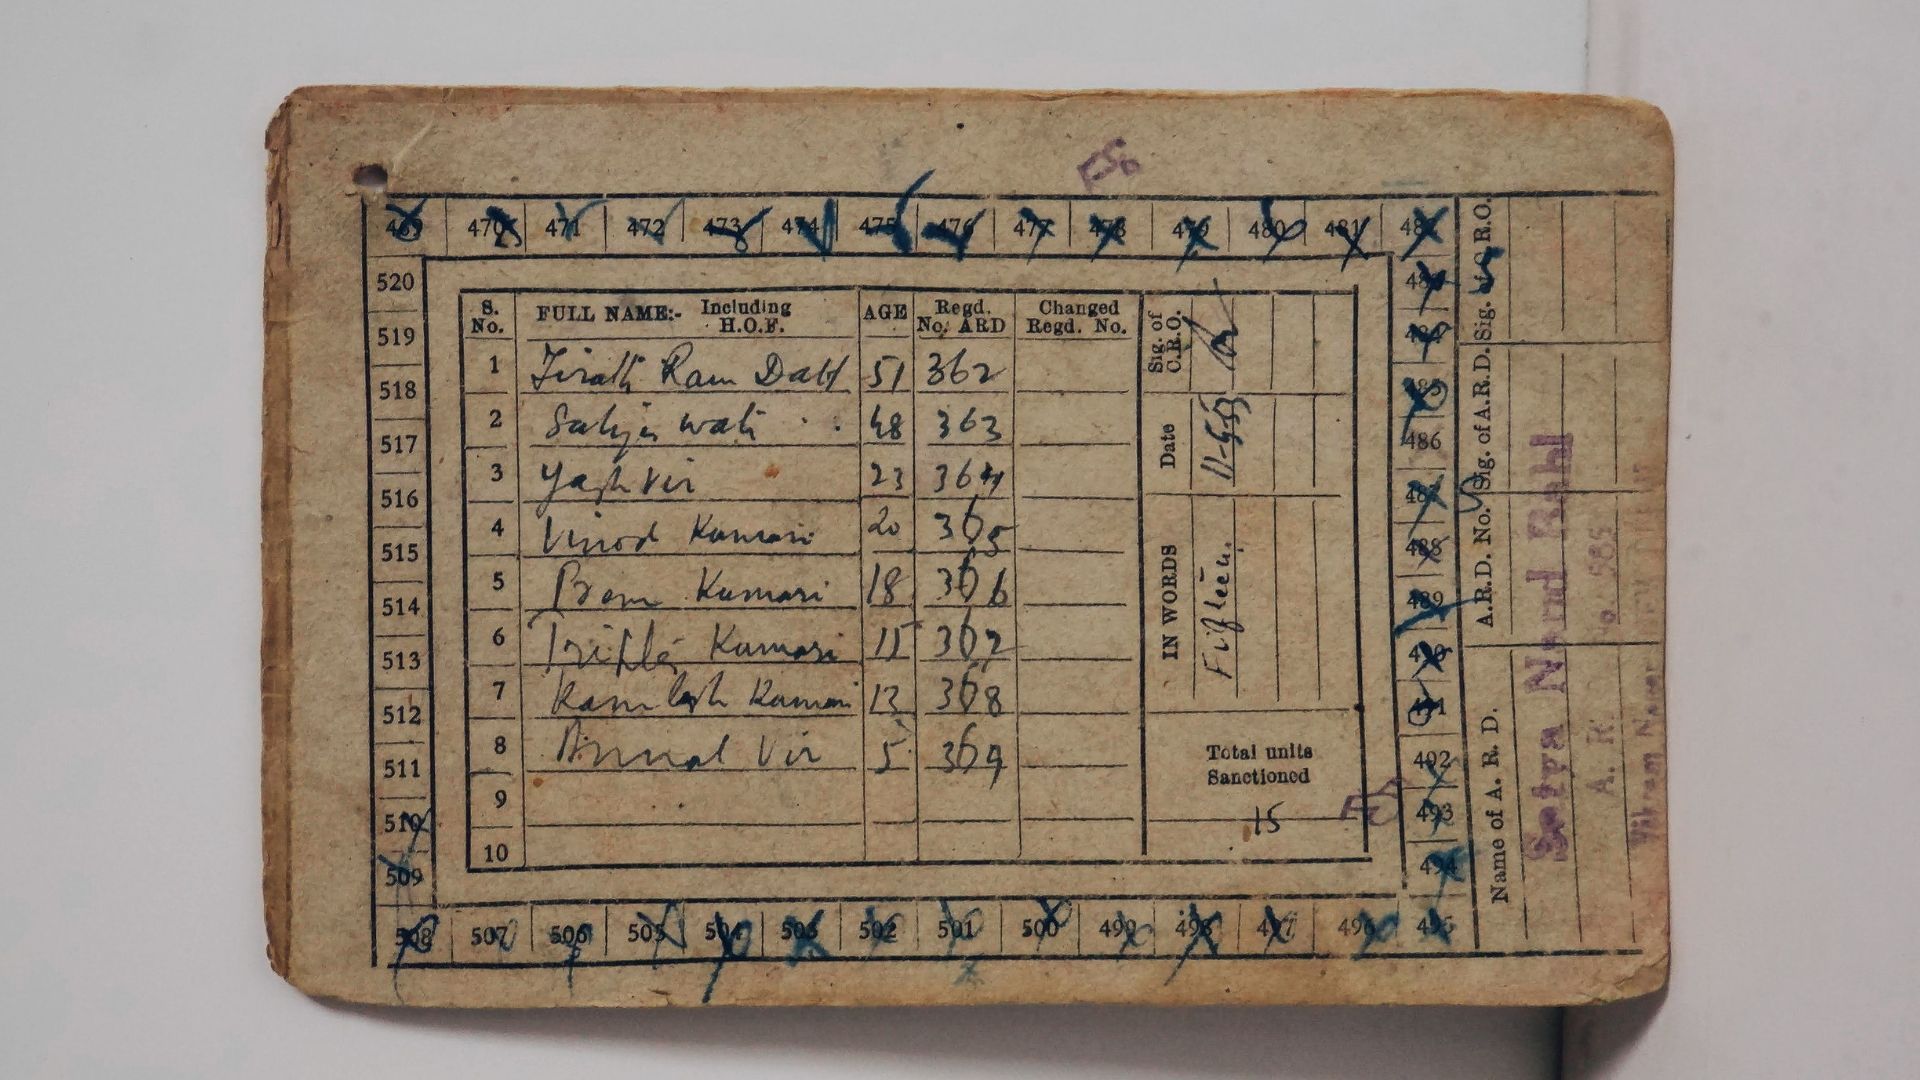 469 470 471 472 473 474 475 476 477 478 479 480 481 482
520
519
518
517
516
515
514
513
512
511
510
509
S. No. FULL NAME:- Including H.O.F. AGE Regd. No. ARD Changed Regd. No.
1 Tirath Ram Datt 51 362
2 Satya wati 48 363
3 Yash Vir 23 364
4 Vinod Kumari 20 365
5 Prem Kumari 18 366
6 Tripta Kumari 15 367
7 Kamlesh Kumari 13 368
8 Vir 5 369
9
10
Sig. of C.R.O.
Date
IN WORDS Fifteen.
Total units
Sanctioned
15
483
484
485
486
487
488
489
490
491
492
493
494
Sig. C.R.O.
Sig. of A.R.D.
A.R.D. No.
Name of A. R. D.
Satya Nand Bahl
A. R.
508 507 506 505 504 503 502 501 500 499 498 497 496 495